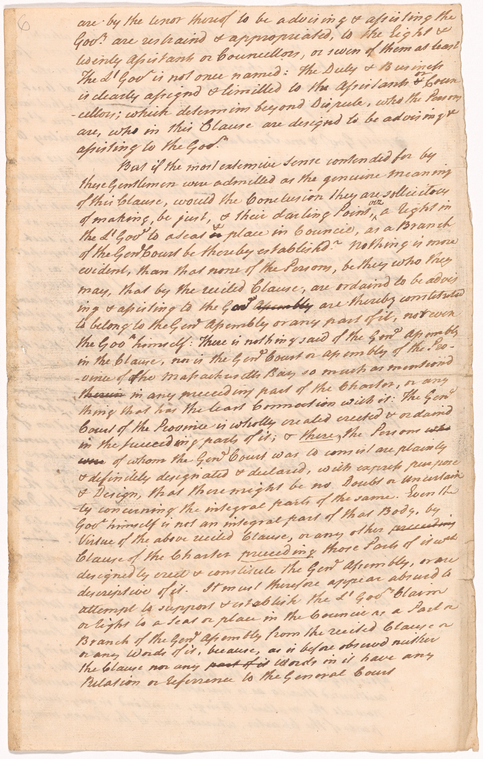 6
are by the tenor thereof to be advising & assisting the
Govr. are restrained & appropriated, to the Eight &
twenty Assistants or Councellors, or seven of them at least
The Lt Govr is not once named: The Duty & Business
is clearly assigned & limitted to the Assistants or Coun-
-cellors; which determins beyond Dispute, who the Persons
are, who in this Clause are designed to be advising &
assisting to the Govr.
But if the most extensive Sense contended for by
these Gentlemen were admitted as the genuine meaning
of this Clause, would the Conclusion they are sollicitous
of making, be just, & their darling Point viz a Right in
the Lt Govr to a seat & place in Council, as a Branch
of the Genl Court be thereby establish'd? Nothing is more
evident, than that none of the Persons, be they who they
may, that by the recited Clause, are ordained to be advis
ing & assisting to the Govr Assembly are thereby constituted
to belong to the Genl Assembly or any part of it, not even
the Govr himself: There is nothing said of the Genl Assembly
in the Clause, nor is the Genl Court or Assembly of the Pro-
-vince of the Massachusetts Bay so much as mentioned
therein in any preceeding part of the Charter, or any
thing that has the least Connection with it: The Genl
Court of the Province is wholly created erected & ordained
in the succeeding parts of it; & there, the Persons who
were of whom the Genl Court was to consist are plainly
& definitely designated & declared, with express purpose
& Design, that there might be no Doubt or Uncertain
ty concerning the integral parts of the same. Even the
Govr himself is not an integral part of that Body, by
Virtue of the above recited Clause, or any other preceeding
Clause of the Charter preceeding those Parts of it wch
designedly erect & constitute the Genl Assembly, or are
descriptive of it. It must therefore appear absurd to
attempt to support & establish the Lt Govrs Claim
or Right to a Seat or place in the Council as a Part or
Branch of the Genl Assembly from the recited Clause or
or any Words of it, because, as is before observed neither
the Clause nor any part of it words in it have any
Relation or referrence to the General Court